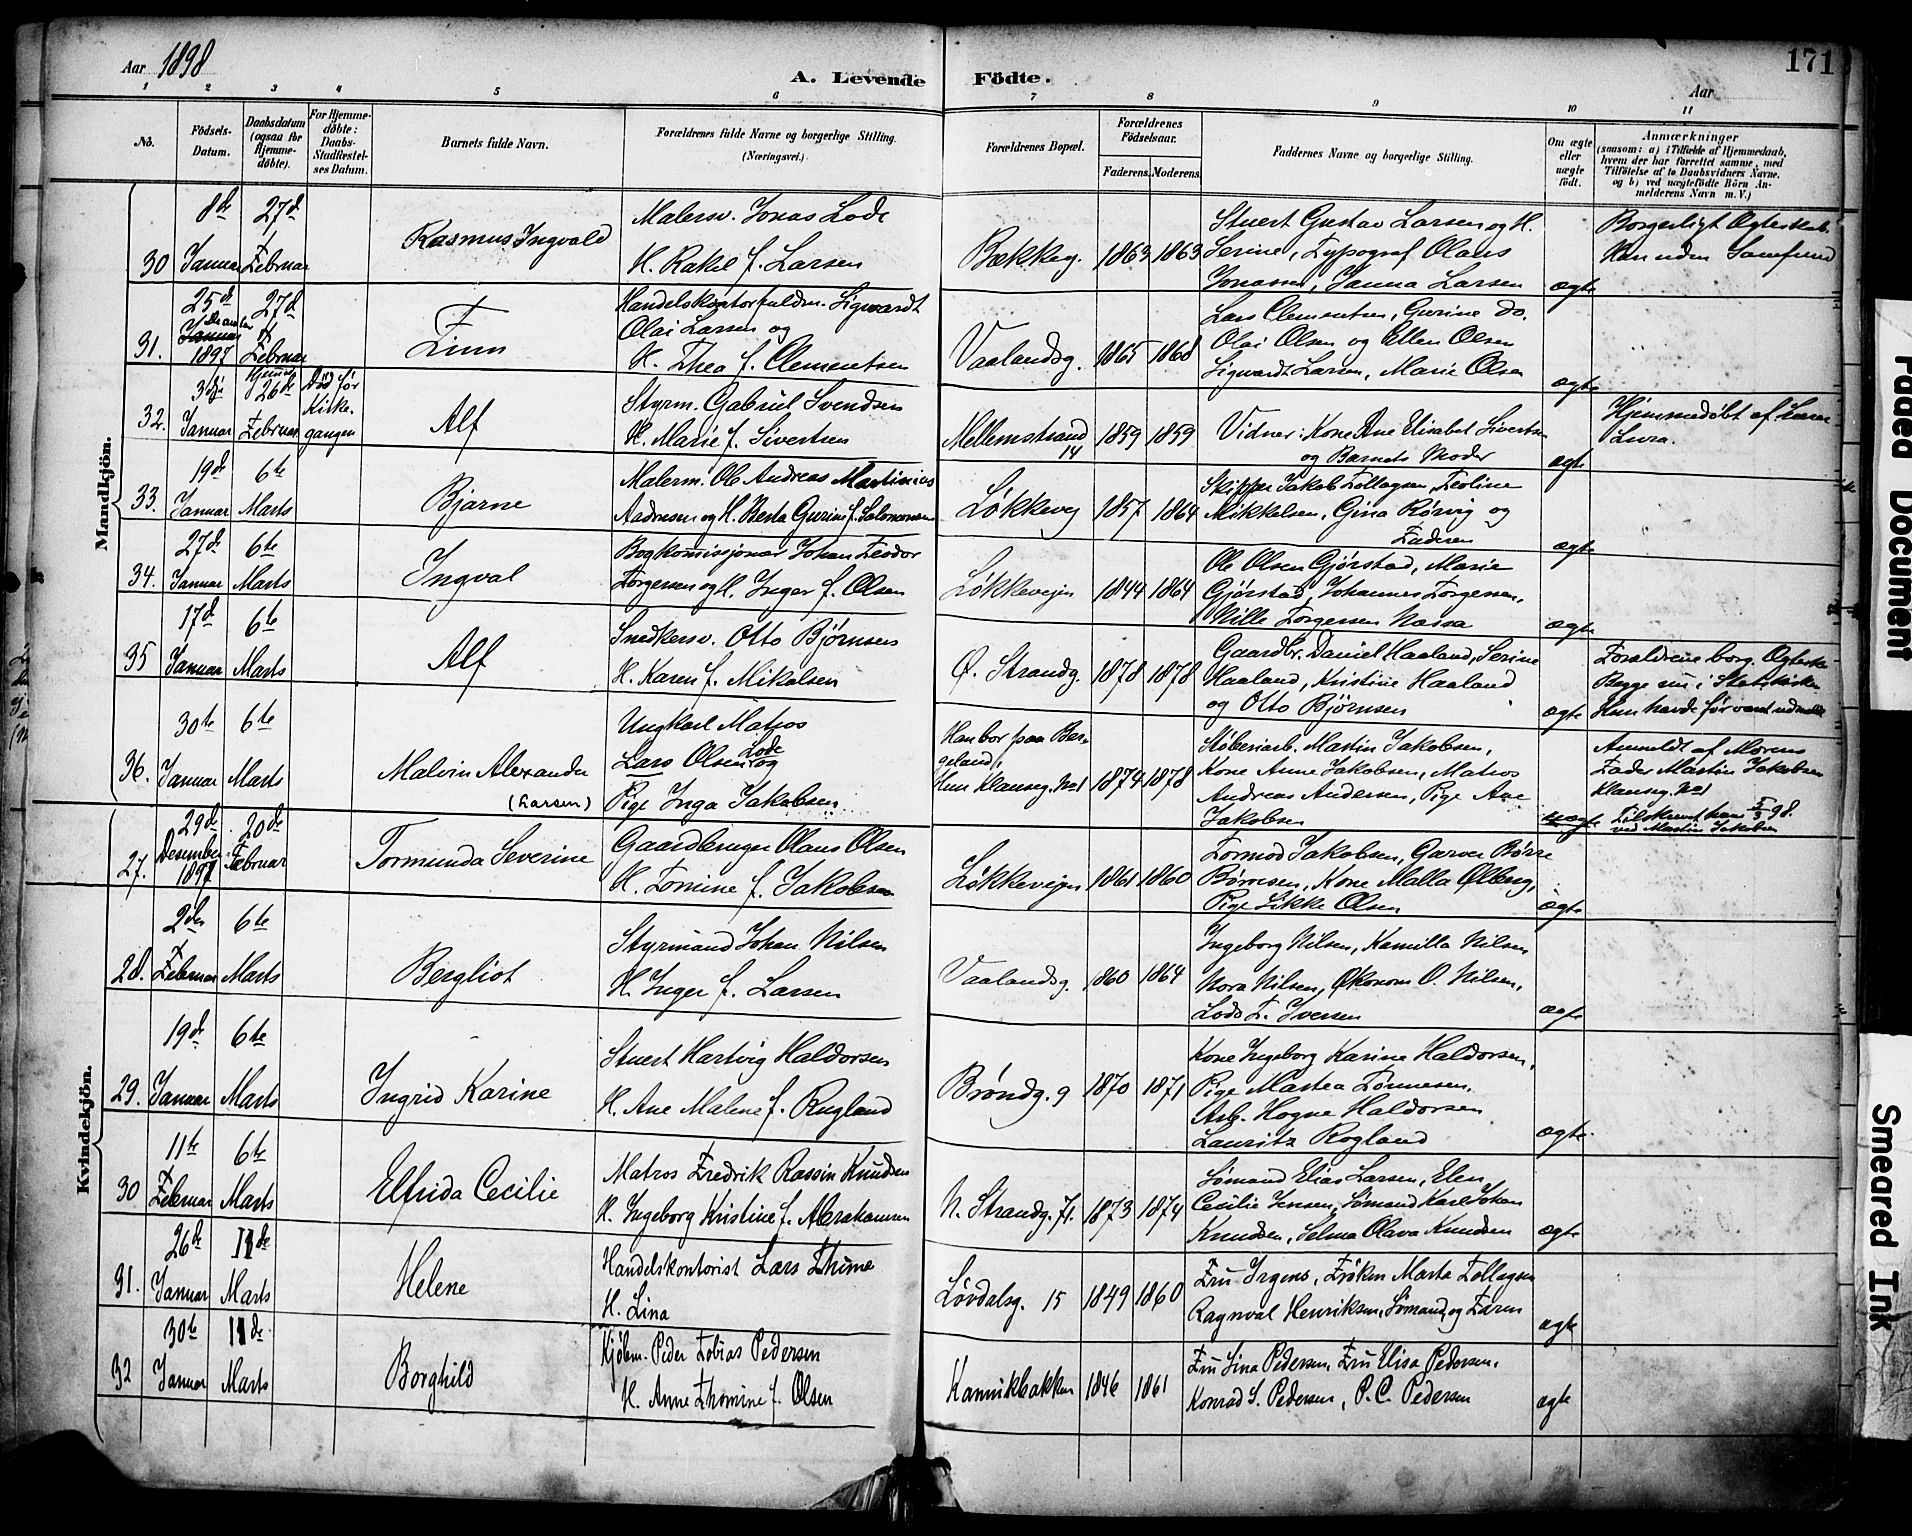 Aar 1898
A. Levende Födte.
171
Aar
1 2 3 4 5 6 7 8 9 10 11
No.
Födsels-Datum.
Daabsdatum (ogsaa for Hjemme-døbte).
For Hjemme-døbte: Daabs-Stadfæstel-ses Datum.
Barnets fulde Navn.
Forældrenes fulde Navne og borgerlige Stilling. (Næringsvei.)
Forældrenes Bopæl.
Forældrenes Födselsaar.
Faderens. Moderens.
Faddernes Navne og borgerlige Stilling.
Om ægte eller uægte født.
Anmærkninger
(saasom: a) i Tilfælde af Hjemmedaab,
hvem der har forrettet samme, med
Tilföielse af to Daabsvidners Navne.
og b) ved uægtefödte Börn An-
melderens Navn m. V.)
Mandkjön.
30 8de Januar 27de Februar
Rasmus Ingvald
Malersv. Jonas Lode
H. Rakel f. Larsen
Bækkeg. 1863 1863
Stuert Gustav Larsen og H.
Serine, Typograf Olaus
Jonassen, Janna Larsen
ægte
Borgerligt Ægteskab
Han uden Samfund
31. 25de Januar Desember 1897 27de Februar
Finn
Handelskontorfuldm. Sigvardt
Olai Larsen og
H. Thea f. Clementsen
Vaalandsg. 1865 1868
Lars Clementsen, Gurine do.
Olai Olsen og Ellen Olsen
Sigvardt Larsen, Marie Olsen
ægte
32. 3die Januar Hjemme 26de Februar
Død før Kirke-gangen
Alf
Styrm. Gabriel Svendsen
H. Marie f. Sivertsen
Mellemstrand 14 1859 1859
Vidner: Kone Ane Elisabet Sivertsen
og Barnets Moder
ægte
Hjemmedøbt af Lærer
Lura.
33. 19de Januar 6te Marts
Bjarne
Malerm. Ole Andreas Martinius
Aadnesen og H. Berta Gurine f. Salomonsen
Løkkevej 1857 1864
Skipper Jakob Tollagsen, Teoline
Mikkelsen, Gina Rørvig og
Faderen
ægte
34. 27de Januar 6te Marts
Ingval
Bogkomissjonær Johan Teodor
Torgersen og H. Inger f. Olsen
Løkkevejen 1844 1864
Ole Olsen Gjørstad, Marie
Gjørstad, Johannes Torgersen,
Nille Torgersen Nassa
ægte
35 17de Januar 6te Marts
Alf
Snedkersv. Otto Bjørnsen
H. Karen f. Mikalsen
Ø. Strandg. 1878 1878
Gaardbr. Daniel Haaland, Serine
Haaland, Kristine Haaland
og Otto Bjørnsen
ægte
Forældrene borg. Ægtesk.
Begge nu i Statskirken
Hun havde før været udmeldt
36. 30te Januar 6te Marts
Malvin Alexander
(Larsen)
Ungkarl Matros
Lars Olsen Lode og
Pige Inga Jakobsen
Han bor paa Ber-
geland,
Hun Klauseg. No 1 1874 1878
Støberiarb. Martin Jakobsen,
Kone Anne Jakobsen, Matros
Andreas Andersen, Pige Ane
Jakobsen
uægte
Anmeldt af Morens
Fader Martin Jakobsen
Klauseg. No 1
Tilskrevet ham 5/3 98.
ved Martin Jakobsen
Kvindekjön.
27. 29de Desember 1897 20de Februar
Tormunda Severine
Gaardbruger Olaus Olsen
H. Tomine f. Jakobsen
Løkkevejen 1861 1860
Tormod Jakobsen, Garver Børre
Børresen, Kone Malla Ølberg,
Pige Likke Olsen
ægte
28. 2den Februar 6te Marts
Bergliot
Styrmand Johan Nilsen
H. Inger f. Larsen
Vaalandsg. 1860 1864
Ingeborg Nilsen, Kamilla Nilsen
Nora Nilsen, Økonom O. Nilsen,
Lods T. Iversen
ægte
29. 19de Januar 6te Marts
Ingrid Karine
Stuert Hartvig Haldorsen
H. Ane Malene f. Rugland
Brøndg. 9 1870 1871
Kone Ingeborg Karine Haldorsen,
Pige Martea Tønnesen,
Arb. Hogne Haldorsen
Lauritz Rogland
ægte
30 11te Februar 6te Marts
Elfrida Cecilie
Matros Fredrik Rassin Knudsen
H. Ingeborg Kristine f. Abrahamsen
N. Strandg. 71. 1873 1874
Sømand Elias Larsen, Elen
Cecilie Jensen, Sømand Karl Johan
Knudsen, Selma Olava Knudsen
ægte
31. 26de Januar 11de Marts
Helene
Handelskontorist Lars Thime
H. Lina
Løvdalsg. 15 1849 1860
Fru Irgens, Frøken Marta Tollagsen
Ragnval Henriksen, Sømand, og Faren
ægte
32 30te Januar 11de Marts
Borghild
Kjøbm. Peder Tobias Pedersen
H. Anne Thomine f. Olsen
Kannikbakken 1846 1861
Fru Sina Pedersen, Fru Elisa Pedersen,
Konrad S. Pedersen, P. C. Pedersen
ægte
Faded Document
Smeared Ink